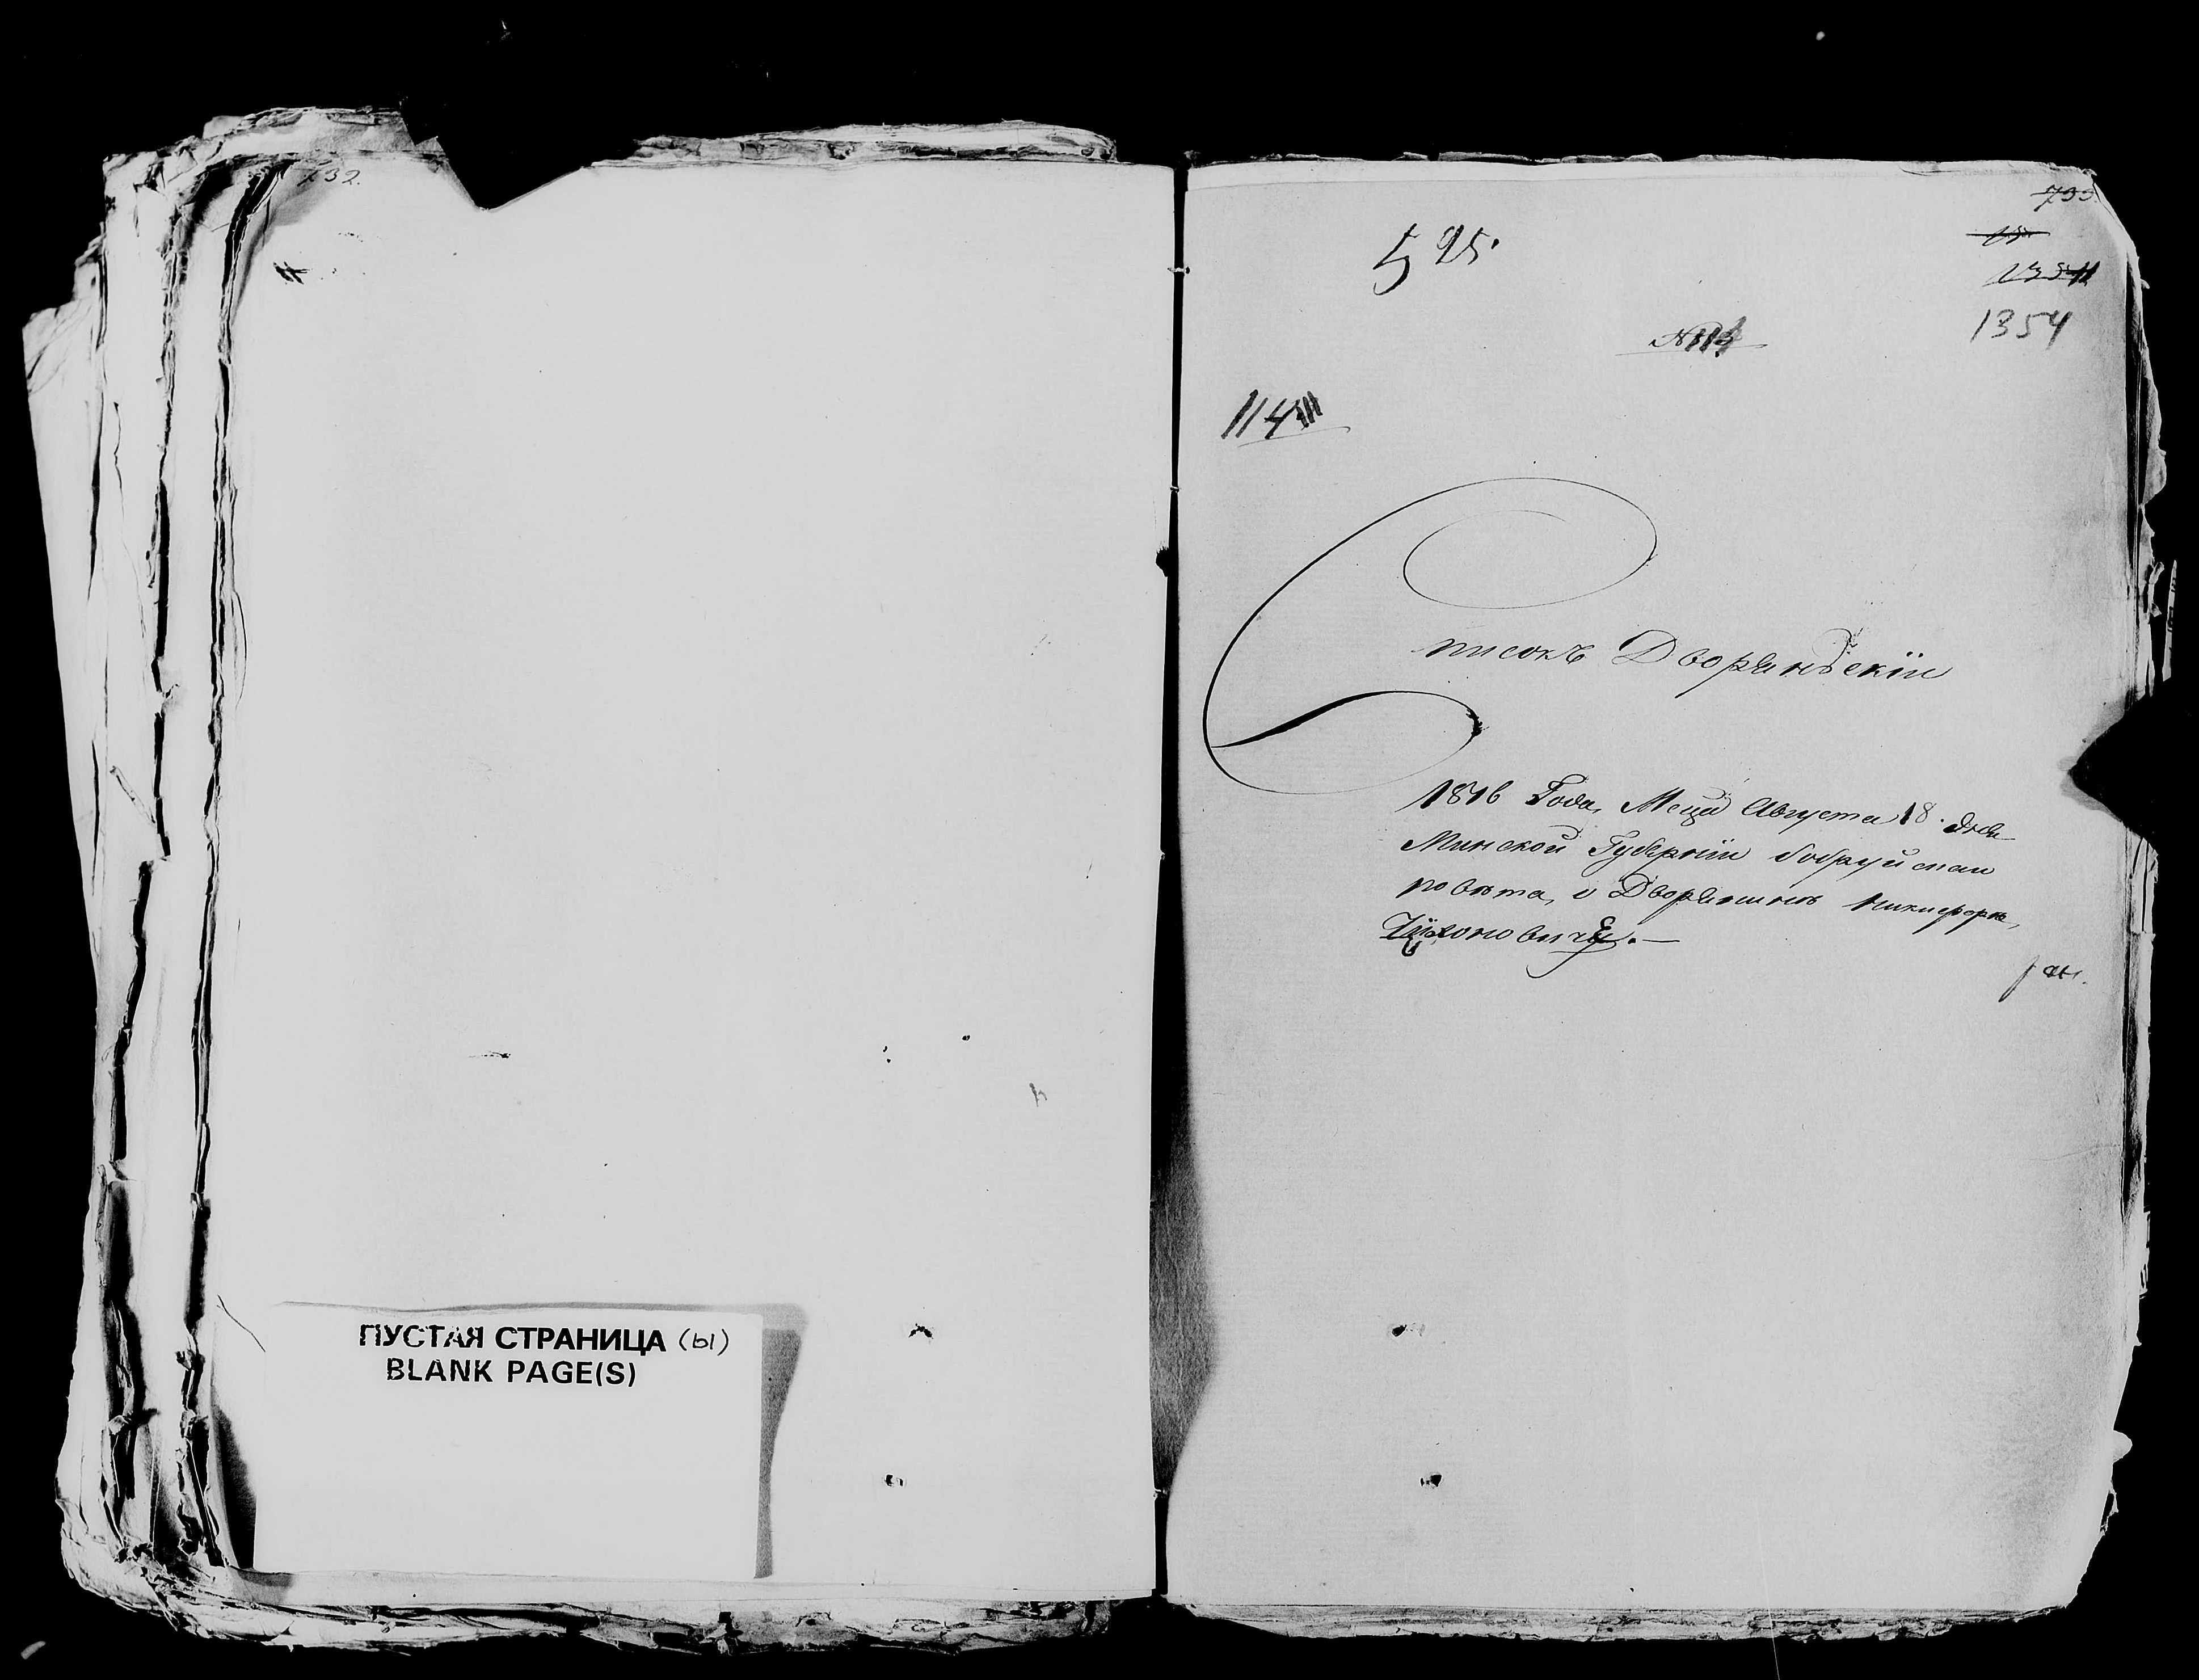 732.
ПУСТАЯ СТРАНИЦА (ы)
BLANK PAGE(S)
733
595.
1354
114
Списокъ Дворянскій
1816 Года, Мсца Августа 18. дня
Минской Губерніи бобруйскаго
повѣта, о Дворянинѣ Никифорѣ,
Тихоновичѣ. —